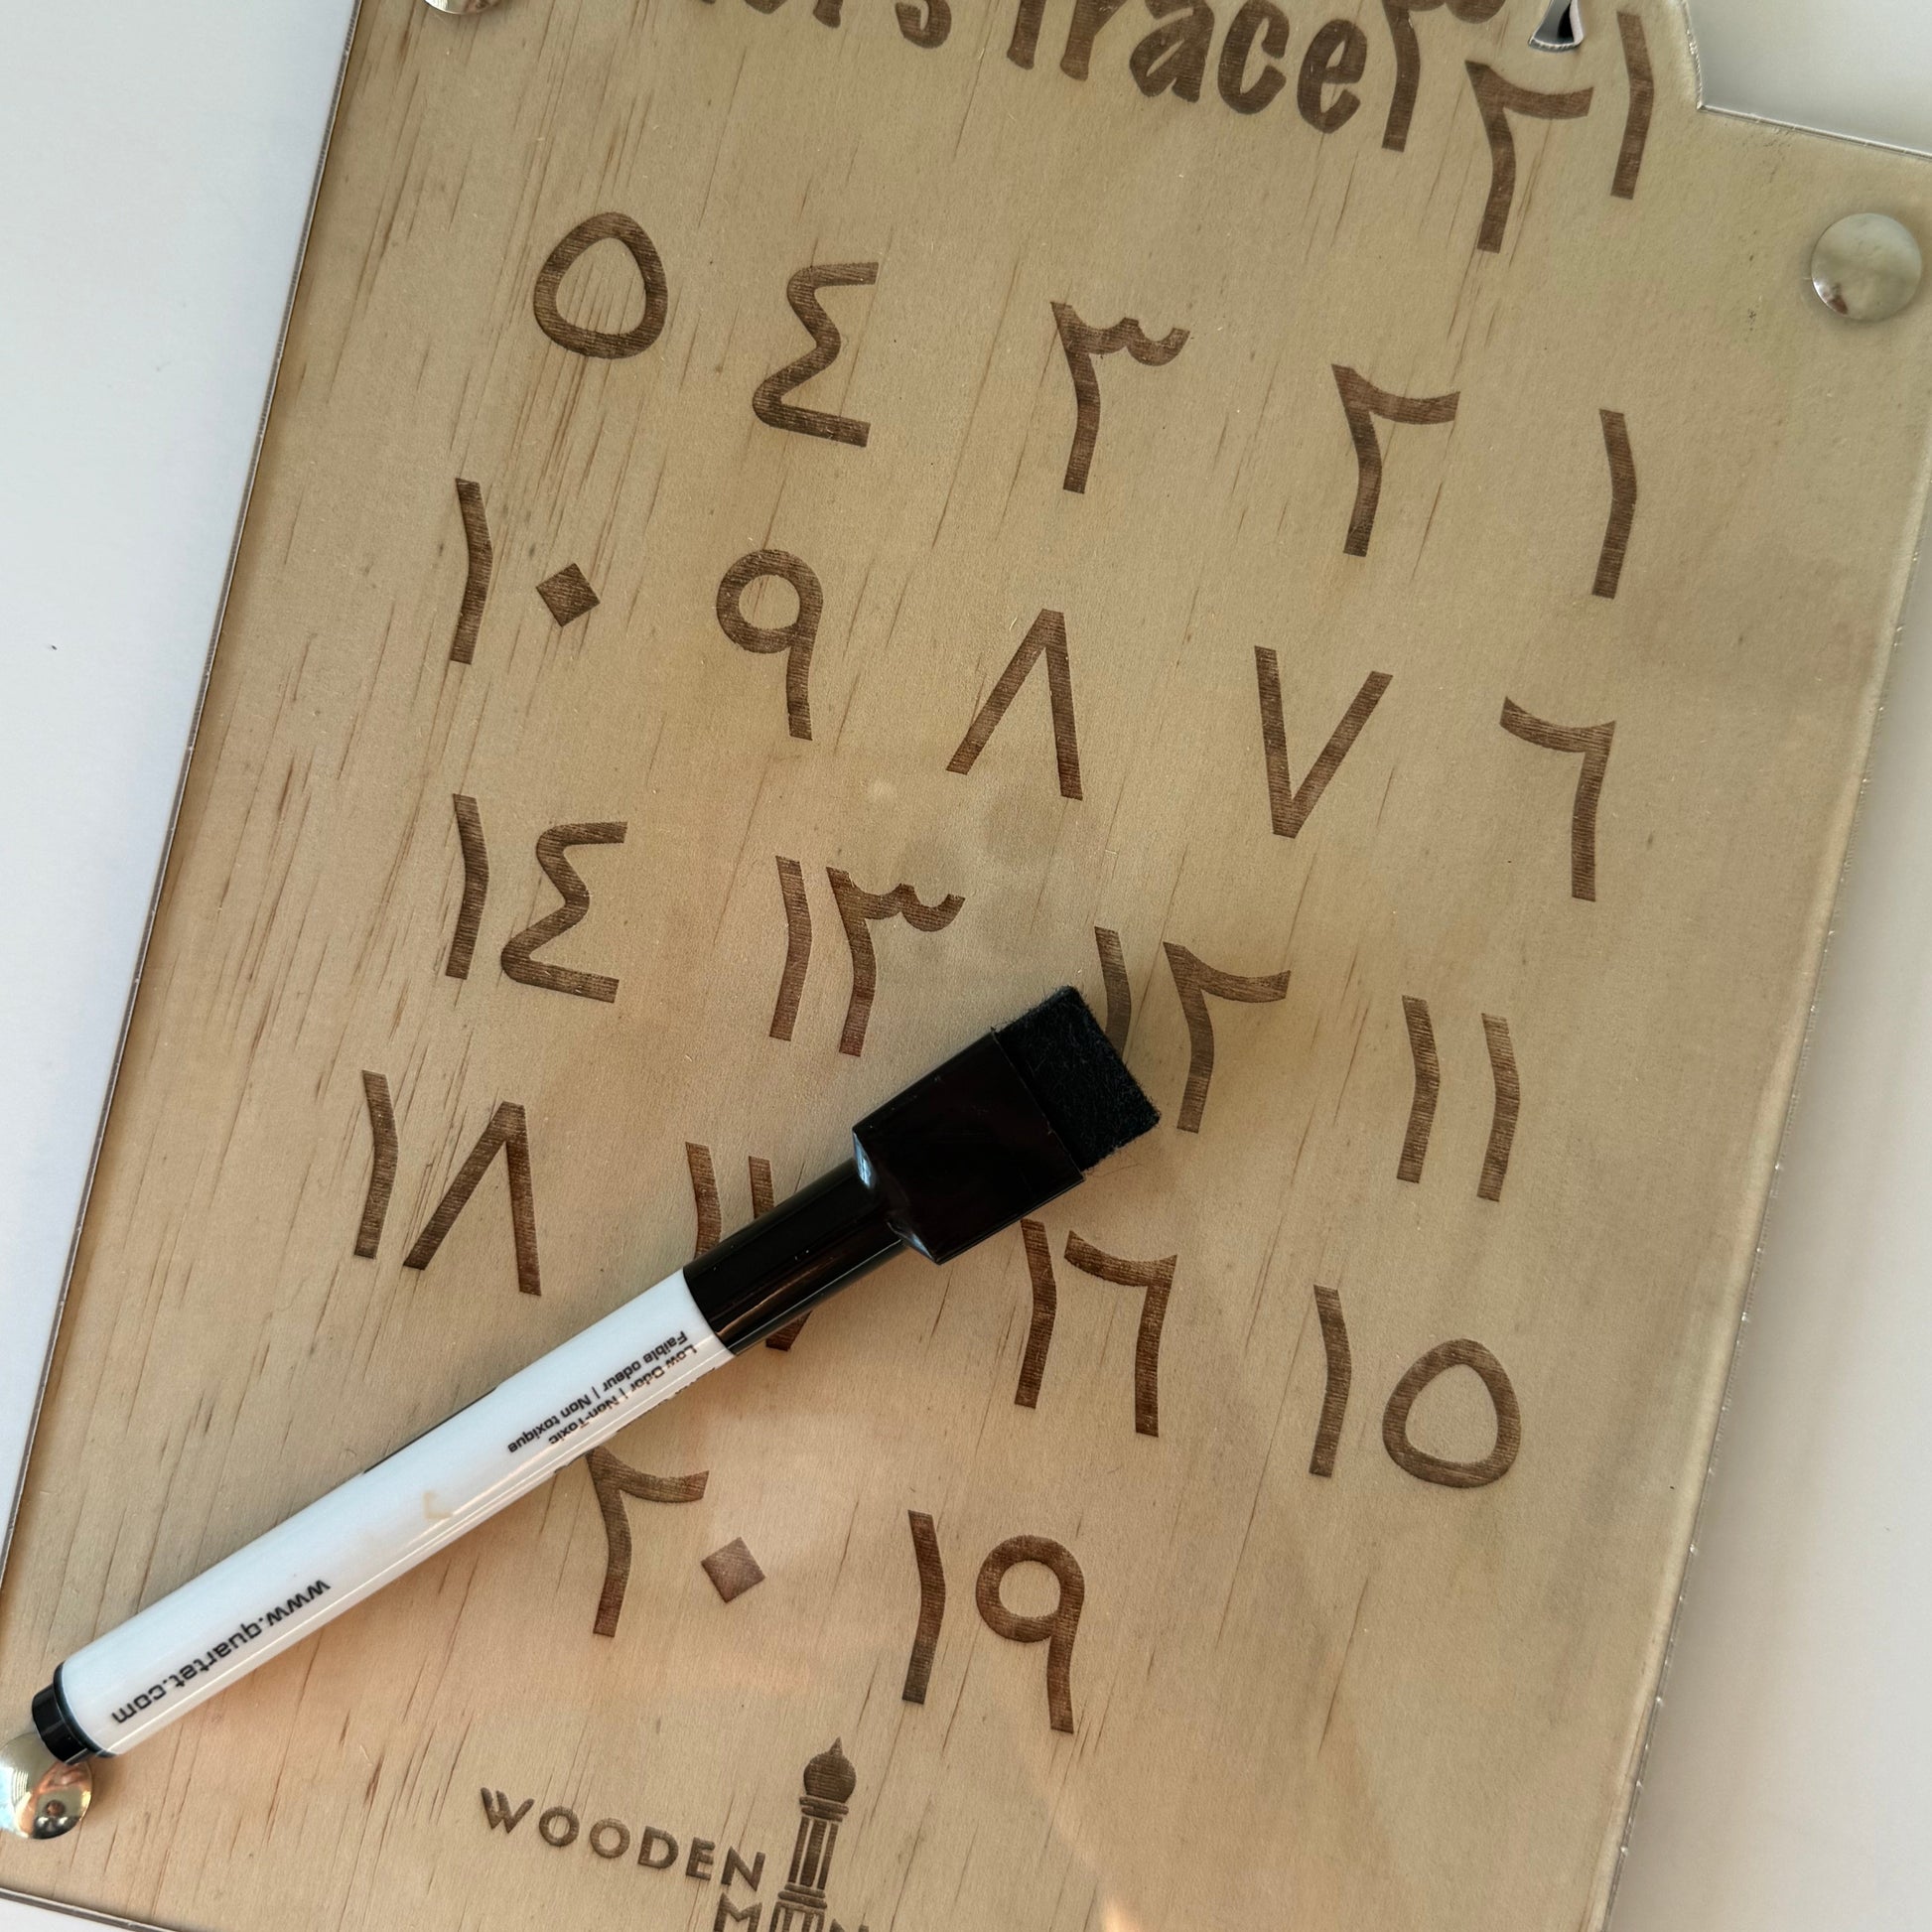 Trace
١ ٢ ٣
١ ٢ ٣ ٤ ٥
٦ ٧ ٨ ٩ ١٠
١١ ١٢ ١٣ ١٤
١٥ ١٦ ١٧ ١٨
١٩ ٢٠
WOODEN
Low Odor | Non-Toxic
Faible odeur | Non toxique
www.quartet.com